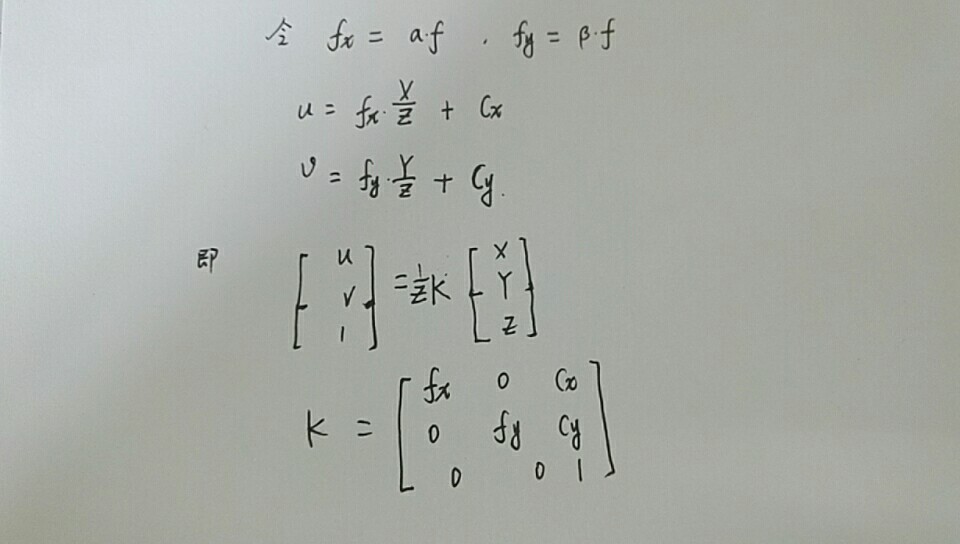 令 fx = α·f , fy = β·f
u = fx·X/Z + Cx
v = fy·Y/Z + Cy.
即 [u v 1] = 1/Z K [X Y Z]
K = [fx 0 Cx
0 fy Cy
0 0 1]